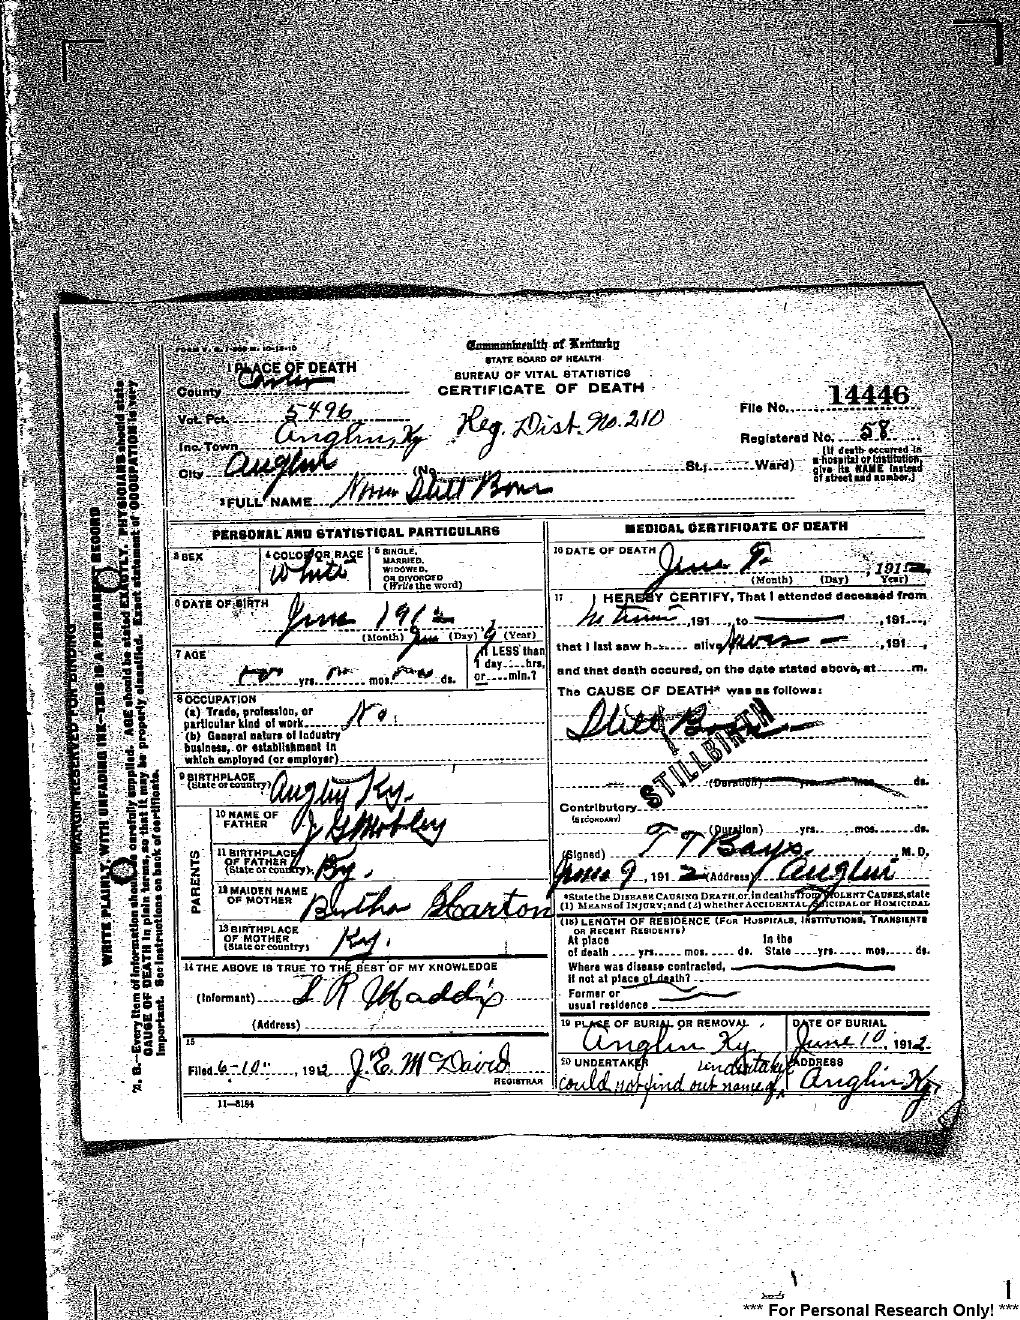 FORM V. S. 1-200 M. 10-12-10
Commonwealth of Kentucky
STATE BOARD OF HEALTH
BUREAU OF VITAL STATISTICS
CERTIFICATE OF DEATH
1 PLACE OF DEATH
County Carter
Vot. Pct. 5496
Inc. Town Anglin, Ky
Reg. Dist. No. 210
City Anglin (No. St.; Ward)
File No. 14446
Registered No. 58
(If death occurred in
a hospital or institution,
give its NAME instead
of street and number.)
2 FULL NAME None Still Born
PERSONAL AND STATISTICAL PARTICULARS
3 SEX
4 COLOR OR RACE
White
5 SINGLE,
MARRIED,
WIDOWED,
OR DIVORCED
(Write the word)
6 DATE OF BIRTH
June 1912
(Month) June (Day) 9 (Year)
7 AGE
yrs. mos. ds.
If LESS than
1 day hrs.
or min.?
8 OCCUPATION
(a) Trade, profession, or
particular kind of work No.
(b) General nature of industry
business, or establishment in
which employed (or employer)
9 BIRTHPLACE
(State or country) Anglin Ky.
PARENTS
10 NAME OF
FATHER J G Mobley
11 BIRTHPLACE
OF FATHER
(State or country) Ky.
12 MAIDEN NAME
OF MOTHER Bertha Harton
13 BIRTHPLACE
OF MOTHER
(State or country) Ky.
14 THE ABOVE IS TRUE TO THE BEST OF MY KNOWLEDGE
(Informant) L R Maddix
(Address)
15
Filed 6-10", 1912 J. E. McDavid
REGISTRAR
11—3184
MEDICAL CERTIFICATE OF DEATH
16 DATE OF DEATH
June 9, 1912
(Month) (Day) Year)
17 I HEREBY CERTIFY, That I attended deceased from
, 191 , to , 191 ,
that I last saw h alive , 191 ,
and that death occured, on the date stated above, at m.
The CAUSE OF DEATH* was as follows:
Still Born
STILLBIRTH
(Duration) yrs. mos. ds.
Contributory
(SECONDARY)
(Duration) yrs. mos. ds.
(Signed) T T Bays. M. D.
June 9, 1912 (Address) Anglin
*State the DISEASE CAUSING DEATH, or, in deaths from VIOLENT CAUSES, state
(1) MEANS of INJURY; and (2) whether ACCIDENTAL, SUICIDAL or HOMICIDAL
(18) LENGTH OF RESIDENCE (FOR HOSPITALS, INSTITUTIONS, TRANSIENTS
OR RECENT RESIDENTS)
At place In the
of death yrs. mos. ds. State yrs. mos. ds.
Where was disease contracted,
If not at place of death?
Former or
usual residence
19 PLACE OF BURIAL OR REMOVAL
Anglin Ky
DATE OF BURIAL
June 10, 1912.
20 UNDERTAKER
could not find out name of undertaker
ADDRESS
Anglin Ky
MARGIN RESERVED FOR BINDING
WRITE PLAINLY, WITH UNFADING INK—THIS IS A PERMANENT RECORD
N. B.—Every item of information should be carefully supplied. AGE should be stated EXACTLY. PHYSICIANS should state
CAUSE OF DEATH in plain terms, so that it may be properly classified. Exact statement of OCCUPATION is very
important. See instructions on back of certificate.
*** For Personal Research Only! ***